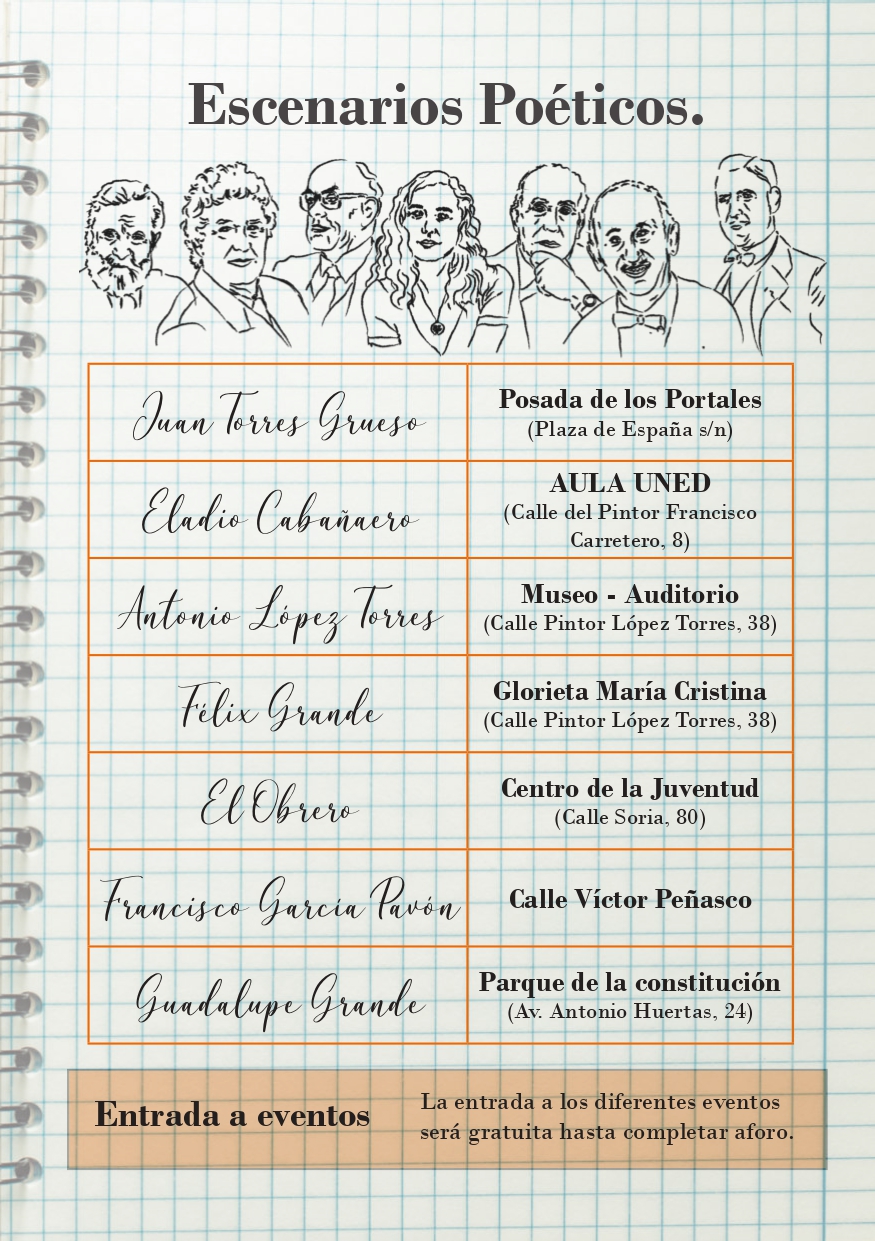 Escenarios Poéticos.
Juan Torres Grueso
Posada de los Portales
(Plaza de España s/n)
Eladio Cabañaero
AULA UNED
(Calle del Pintor Francisco
Carretero, 8)
Antonio López Torres
Museo - Auditorio
(Calle Pintor López Torres, 38)
Félix Grande
Glorieta María Cristina
(Calle Pintor López Torres, 38)
El Obrero
Centro de la Juventud
(Calle Soria, 80)
Francisco García Pavón
Calle Víctor Peñasco
Guadalupe Grande
Parque de la constitución
(Av. Antonio Huertas, 24)
Entrada a eventos
La entrada a los diferentes eventos
será gratuita hasta completar aforo.